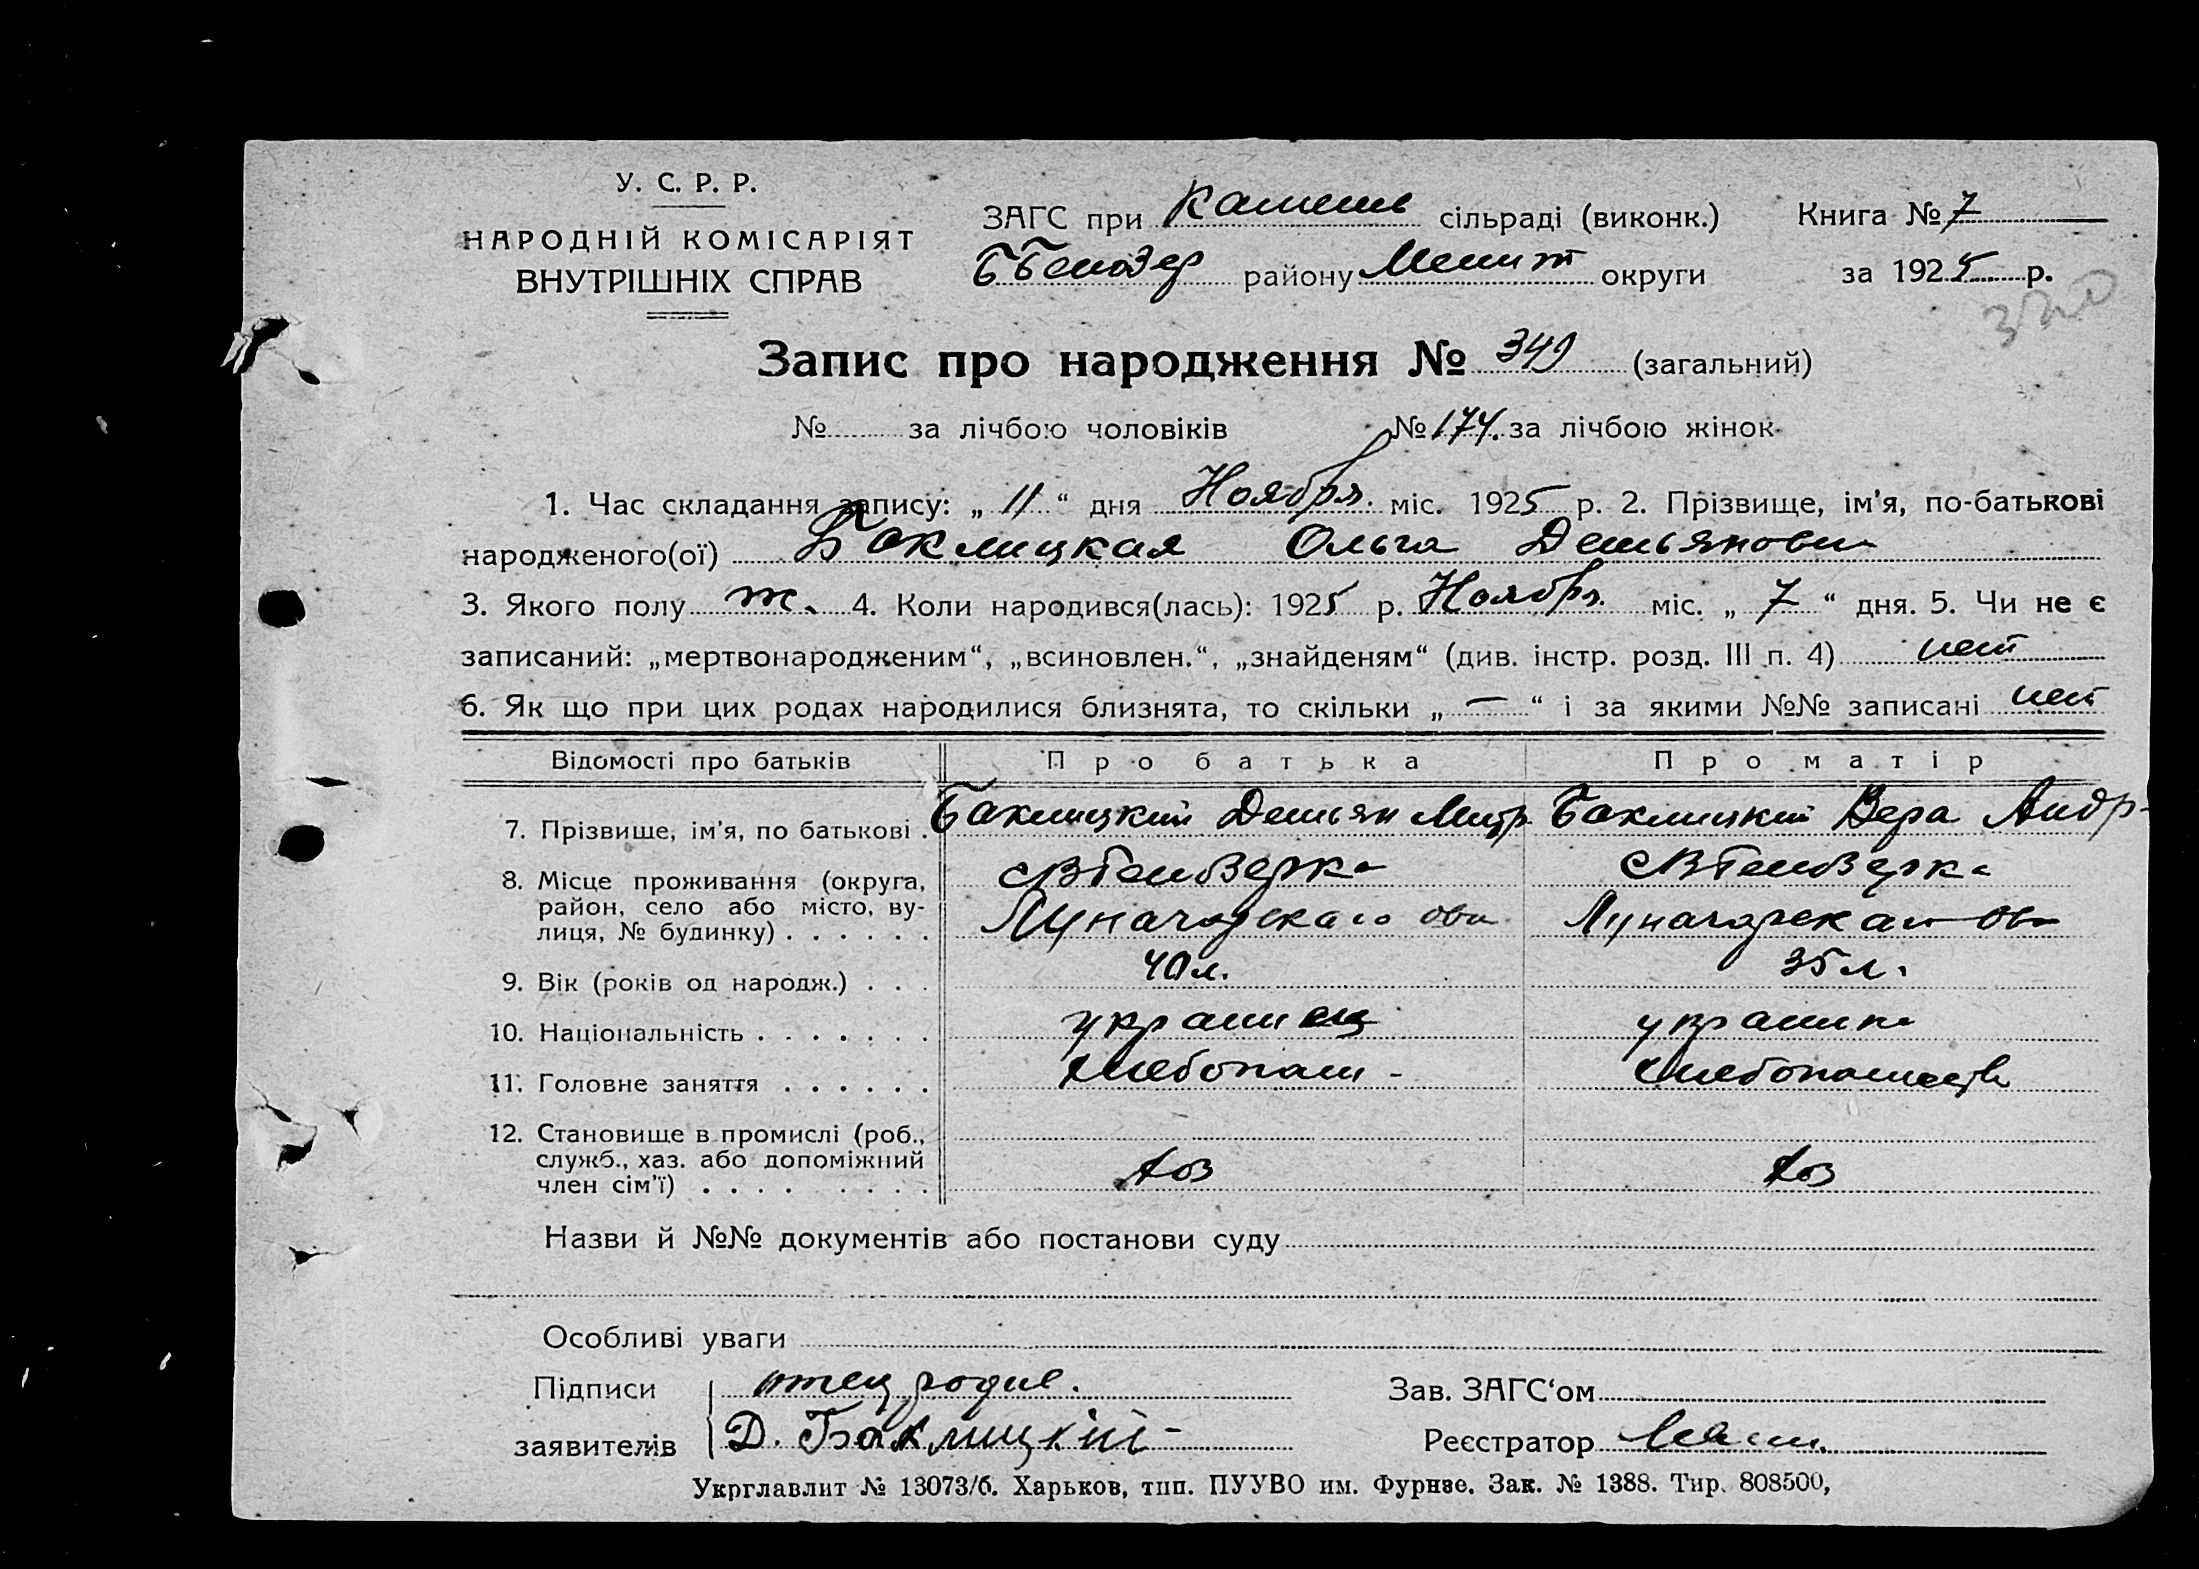 У. С. Р. Р.
НАРОДНІЙ КОМІСАРІЯТ
ВНУТРІШНІХ СПРАВ
ЗАГС при Каменс сільраді (виконк.) Книга № 7
району Мелит округи за 1925 р.
Запис про народження № 349 (загальний)
№ за лічбою чоловіків № 174. за лічбою жінок
1. Час складання запису: „ 11 “ дня Ноября. міс. 1925 р. 2. Прізвище, ім'я, по-батькові
народженого(ої) Баклицкая Ольга Демьяновн
3. Якого полу ж. 4. Коли народився(лась): 1925 р. Ноябрь. міс. „ 7 “ дня. 5. Чи не є
записаний: „мертвонародженим“, „всиновлен.“, „знайденям“ (див. інстр. розд. III п. 4) нет
6. Як що при цих родах народилися близнята, то скільки „ — “ і за якими №№ записані нет
Відомості про батьків Про батька Про матір
7. Прізвише, ім'я, по батькові . Баклицкий Демьян Митр Баклицкий Вера Андр-
8. Місце проживання (округа,
район, село або місто, ву-
лиця, № будинку) . . . . . .
9. Вік (років од народж.) . . . 40 л. 35 л.
10. Національність . . . . . . . украинец украинк
11. Головне заняття . . . . . . хлебопаш - хлебопашеств
12. Становище в промислі (роб.,
служб., хаз. або допоміжний
член сім'ї) . . . . . . . . хоз хоз
Назви й №№ документів або постанови суду
Особливі уваги
Підписи отец Зав. ЗАГС'ом
заявителів Д. Баклицкій Реєстратор
Укрглавлит № 13073/б. Харьков, тип. ПУУВО им. Фурнзе. Зак. № 1388. Тир. 808500,